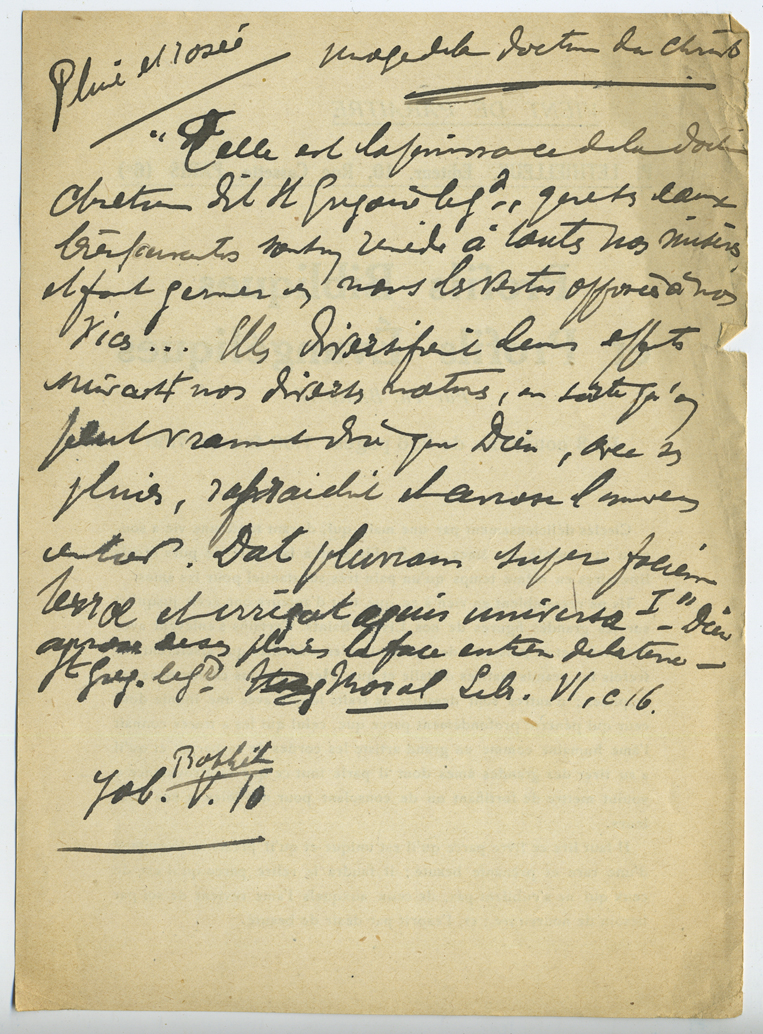 Pluie et rosée
image de la doctrine du Christ
"Telle est la puissance de la doctrine
chrétienne dit St Grégoire le gd .. que ses eaux
bienfaisantes sont un remède à toutes nos misères,
et font germer en nous les vertus opposées à nos
vices... Elles diversifient leurs effets
suivant nos diverses natures, en sorte qu'on
peut vraiment dire que Dieu, avec ses
pluies, rafraichit et arrose l'univers
entier. Dat pluviam super faciem
terrae et irrigat aquis universa I" - Dieu
arrose de ses pluies la face entière de la terre -
St Greg. le gd. Moral Lib. VI, c 16.
Job. V. 10